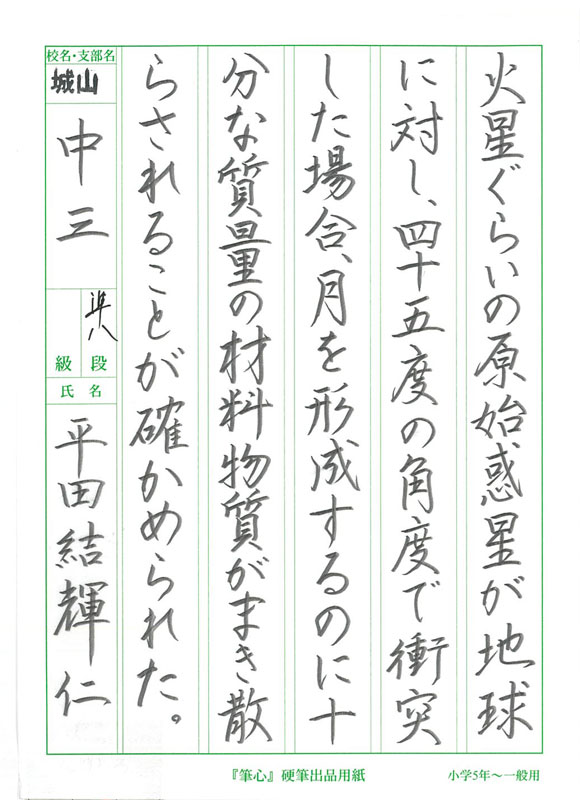 火星ぐらいの原始惑星が地球
に対し、四十五度の角度で衝突
した場合、月を形成するのに十
分な質量の材料物質がまき散
らされることが確かめられた。
校名・支部名
城山
中三
準八
段
級
氏名
平田結輝仁
『筆心』硬筆出品用紙
小学5年～一般用